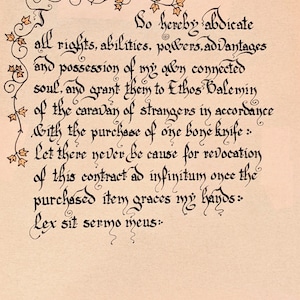 I Do hereby abdicate
all rights, abilities, powers, advantages
and possession of my own connected
soul, and grant them to Ethos Valemin
of the caravan of strangers in accordance
with the purchase of one bone knife:
Let there never be cause for revocation
of this contract ad infinitum once the
purchased item graces my hands:
Lex sit sermo meus: